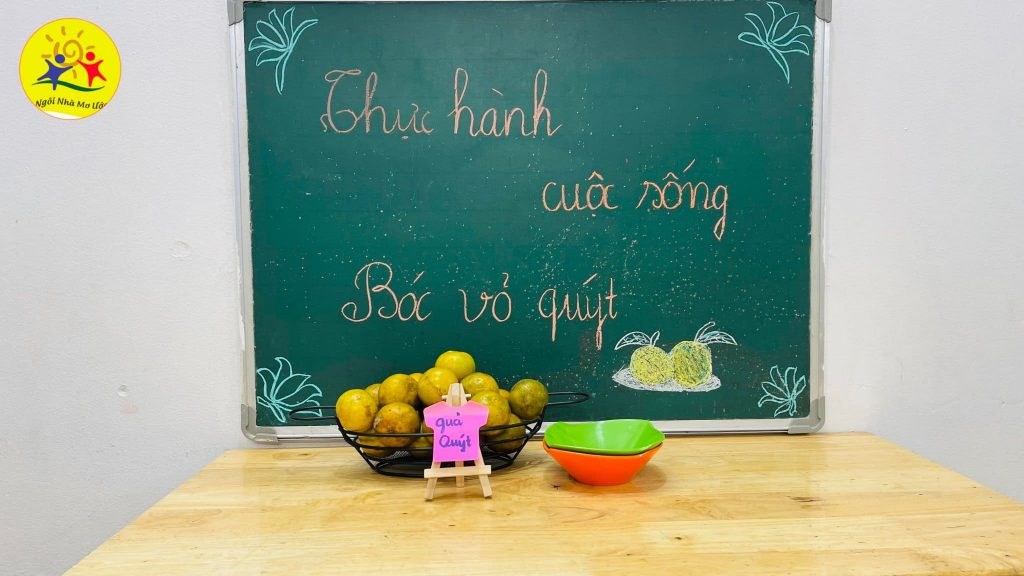 Ngôi Nhà Mơ Ướ
Thực hành
cuộc sống
Bóc vỏ quýt
quả
Quýt